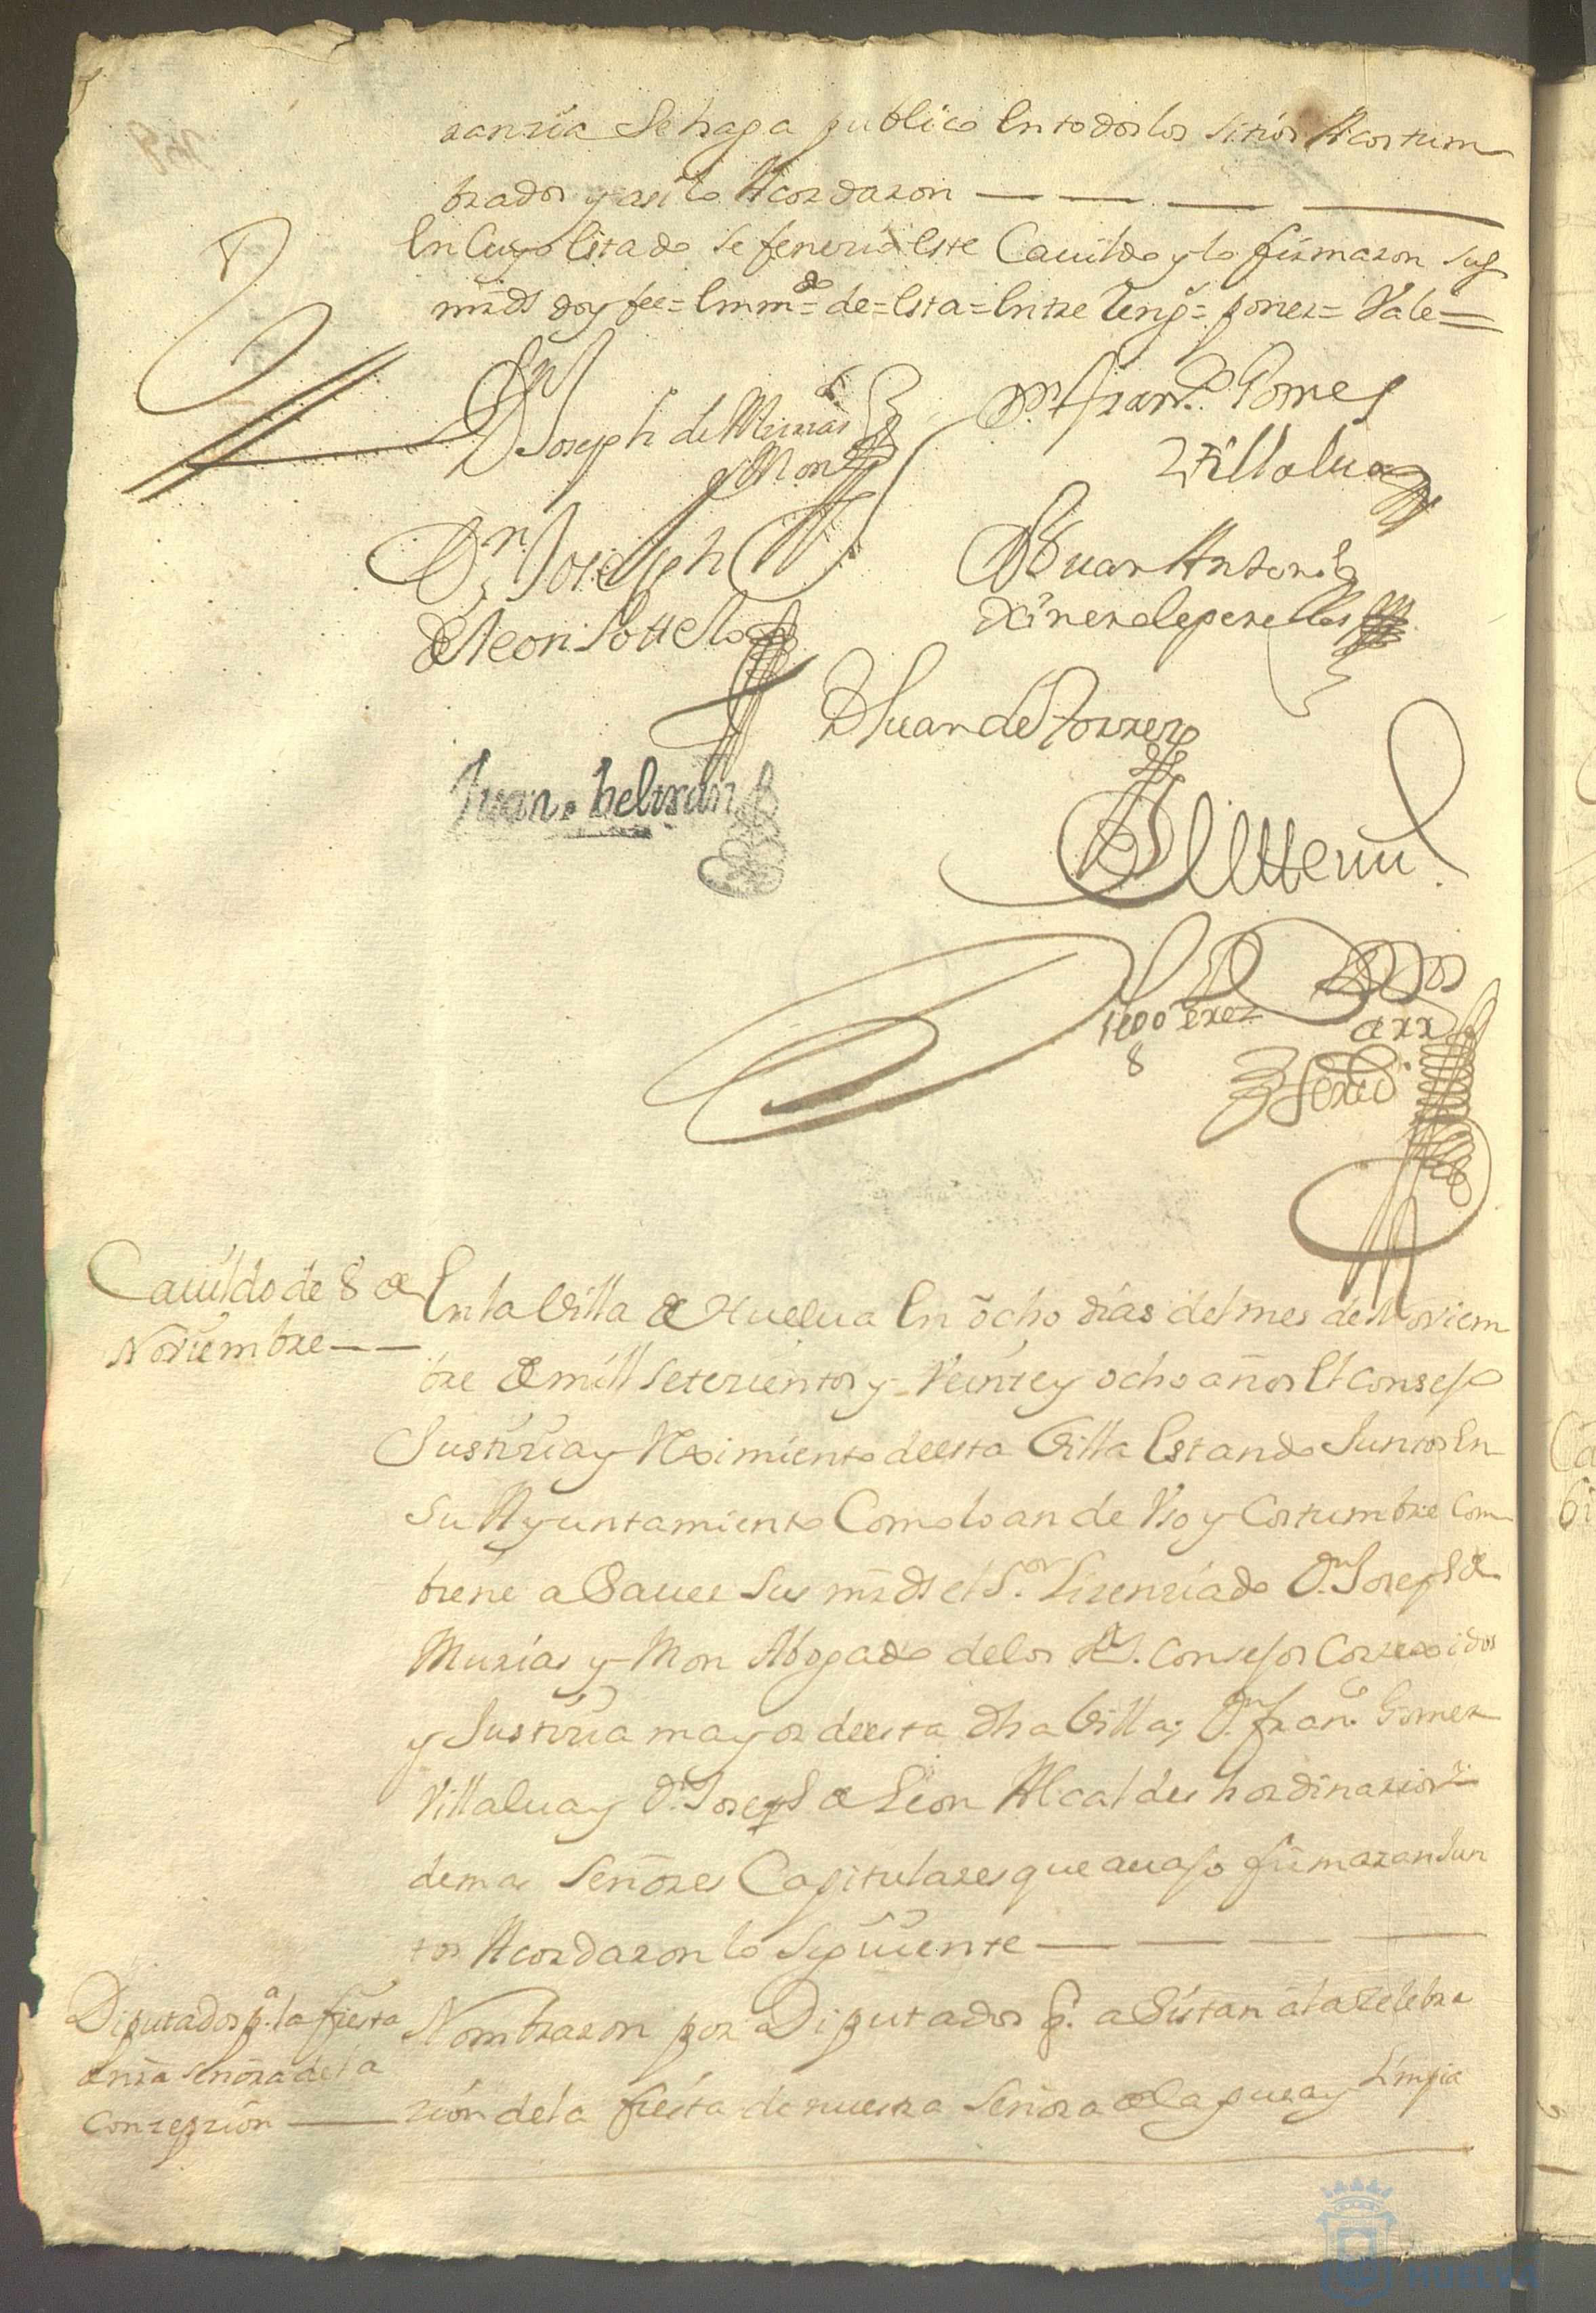 ranzia Se haga publico En todos los Sitios Acostum
brados y asi lo Acordaron
En Cuyo Estado Se fenezio Este Cauildo y lo firmaron Sus
mrds doy fee= Emmdo= de= Esta= Entre Reng.= poner= Vale=
Dn Joseph de Murias
y Mon
Dn Fran.co Gomes
Villalua
Dn Joseph
de leon Sottelo
D Juan Antonio
Ximenes de perellos
D Juan de Torres
Juan. beltran
Diego Perez
Cauildo de 8 de
Noviembre
En la Villa de Huelua En ocho dias del mes de Noviem
bre de mill Setezientos y Veinte y ocho años El Consejo
Justizia y Reximiento de esta Villa Estando Juntos En
Su Ayuntamiento Como lo an de Vso y Costumbre Com
biene a Sauer Sus mrds el S.or Lizenziado D.n Joseph de
Murias y Mon Abogado de los Rs. Consejos Correxidor
y Justizia mayor de esta dha Villa, D.n Fran.co Gomez
Villalua y D.n Joseph de Leon Alcaldes hordinarios
demas Señores Capitulares que auajo firmaran Jun
tos Acordaron lo Siguiente
Diputados p.a la fiesta
de nra Señora de la
Conzepzion
Nombraron por Diputados p.a aSistan a la Zelebra
zion de la fiesta de nuestra Señora de la pura y Limpia
HUELVA